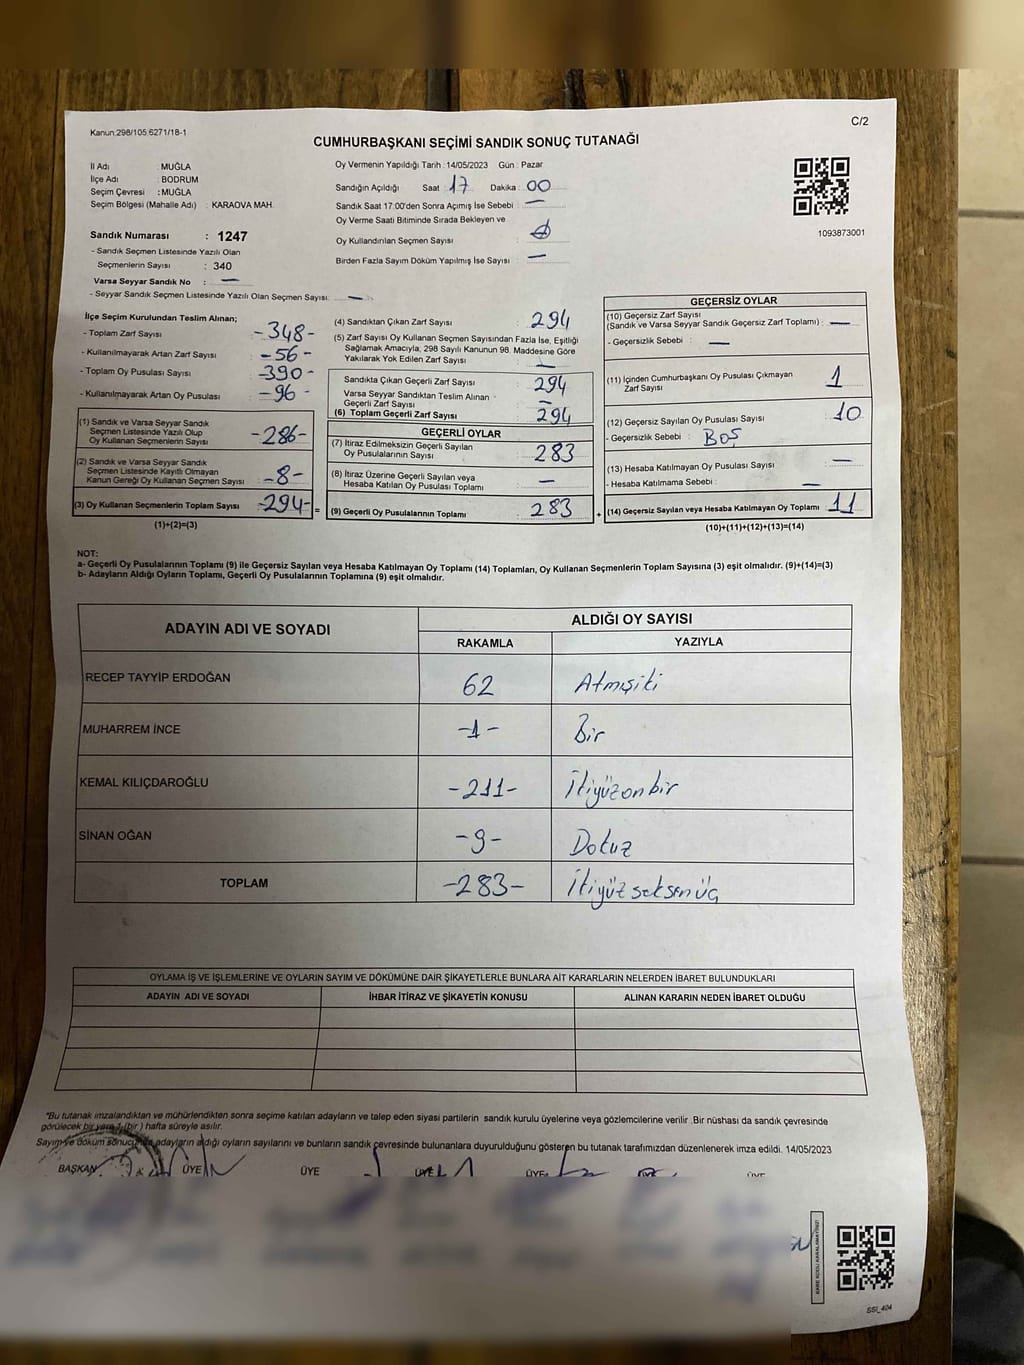 Kanun:298/105 6271/18-1
C/2
CUMHURBAŞKANI SEÇİMİ SANDIK SONUÇ TUTANAĞI
İl Adı : MUĞLA
İlçe Adı : BODRUM
Seçim Çevresi : MUĞLA
Seçim Bölgesi (Mahalle Adı) : KARAOVA MAH.
Sandık Numarası : 1247
- Sandık Seçmen Listesinde Yazılı Olan
Seçmenlerin Sayısı : 340
Varsa Seyyar Sandık No : —
- Seyyar Sandık Seçmen Listesinde Yazılı Olan Seçmen Sayısı: —
Oy Vermenin Yapıldığı Tarih : 14/05/2023 Gün : Pazar
Sandığın Açıldığı Saat : 17 Dakika : 00
Sandık Saat 17:00'den Sonra Açımış İse Sebebi : —
Oy Verme Saati Bitiminde Sırada Bekleyen ve
Oy Kullandırılan Seçmen Sayısı :
Birden Fazla Sayım Döküm Yapılmış İse Sayısı : —
1093873001
İlçe Seçim Kurulundan Teslim Alınan;
- Toplam Zarf Sayısı : -348-
- Kullanılmayarak Artan Zarf Sayısı : -56-
- Toplam Oy Pusulası Sayısı : -390-
- Kullanılmayarak Artan Oy Pusulası : -96-
(1) Sandık ve Varsa Seyyar Sandık
Seçmen Listesinde Yazılı Olup
Oy Kullanan Seçmenlerin Sayısı : -286-
(2) Sandık ve Varsa Seyyar Sandık
Seçmen Listesinde Kayıtlı Olmayan
Kanun Gereği Oy Kullanan Seçmen Sayısı : -8-
(3) Oy Kullanan Seçmenlerin Toplam Sayısı : -294- =
(1)+(2)=(3)
(4) Sandıktan Çıkan Zarf Sayısı : 294
(5) Zarf Sayısı Oy Kullanan Seçmen Sayısından Fazla İse, Eşitliği
Sağlamak Amacıyla, 298 Sayılı Kanunun 98. Maddesine Göre
Yakılarak Yok Edilen Zarf Sayısı : —
Sandıkta Çıkan Geçerli Zarf Sayısı : 294
Varsa Seyyar Sandıktan Teslim Alınan
Geçerli Zarf Sayısı : -
(6) Toplam Geçerli Zarf Sayısı : 294
GEÇERLİ OYLAR
(7) İtiraz Edilmeksizin Geçerli Sayılan
Oy Pusulalarının Sayısı : 283
(8) İtiraz Üzerine Geçerli Sayılan veya
Hesaba Katılan Oy Pusulası Toplamı : —
(9) Geçerli Oy Pusulalarının Toplamı : 283 +
GEÇERSİZ OYLAR
(10) Geçersiz Zarf Sayısı
(Sandık ve Varsa Seyyar Sandık Geçersiz Zarf Toplamı) : —
- Geçersizlik Sebebi : —
(11) İçinden Cumhurbaşkanı Oy Pusulası Çıkmayan
Zarf Sayısı : 1
(12) Geçersiz Sayılan Oy Pusulası Sayısı : 10
- Geçersizlik Sebebi : BOŞ
(13) Hesaba Katılmayan Oy Pusulası Sayısı : —
- Hesaba Katılmama Sebebi : —
(14) Geçersiz Sayılan veya Hesaba Katılmayan Oy Toplamı : 11
(10)+(11)+(12)+(13)=(14)
NOT:
a- Geçerli Oy Pusulalarının Toplamı (9) ile Geçersiz Sayılan veya Hesaba Katılmayan Oy Toplamı (14) Toplamları, Oy Kullanan Seçmenlerin Toplam Sayısına (3) eşit olmalıdır. (9)+(14)=(3)
b- Adayların Aldığı Oyların Toplamı, Geçerli Oy Pusulalarının Toplamına (9) eşit olmalıdır.
ADAYIN ADI VE SOYADI ALDIĞI OY SAYISI
RAKAMLA YAZIYLA
RECEP TAYYİP ERDOĞAN 62 Atmışiki
MUHARREM İNCE -1- Bir
KEMAL KILIÇDAROĞLU -211- İkiyüzonbir
SİNAN OĞAN -9- Dokuz
TOPLAM -283- İkiyüzseksenüç
OYLAMA İŞ VE İŞLEMLERİNE VE OYLARIN SAYIM VE DÖKÜMÜNE DAİR ŞİKAYETLERLE BUNLARA AİT KARARLARIN NELERDEN İBARET BULUNDUKLARI
ADAYIN ADI VE SOYADI İHBAR İTİRAZ VE ŞİKAYETİN KONUSU ALINAN KARARIN NEDEN İBARET OLDUĞU
*Bu tutanak imzalandıktan ve mühürlendikten sonra seçime katılan adayların ve talep eden siyasi partilerin sandık kurulu üyelerine veya gözlemcilerine verilir. Bir nüshası da sandık çevresinde
görülecek bir yere 1 (bir) hafta süreyle asılır.
Sayım ve döküm sonucunda adayların aldığı oyların sayılarını ve bunların sandık çevresinde bulunanlara duyurulduğunu gösteren bu tutanak tarafımızdan düzenlenerek imza edildi. 14/05/2023
BAŞKAN ÜYE ÜYE ÜYE ÜYE ÜYE ÜYE
SSİ_404